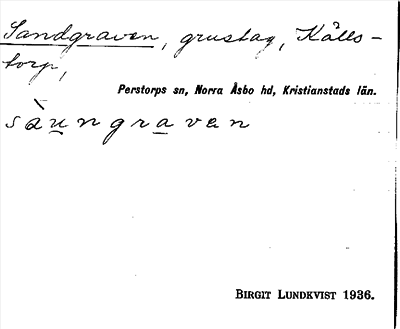 Sandgraven, grustag, Källs-
torp,
Perstorps sn, Norra Åsbo hd, Kristianstads län.
sàu̲ngra̲ven
BIRGIT LUNDKVIST 1936.